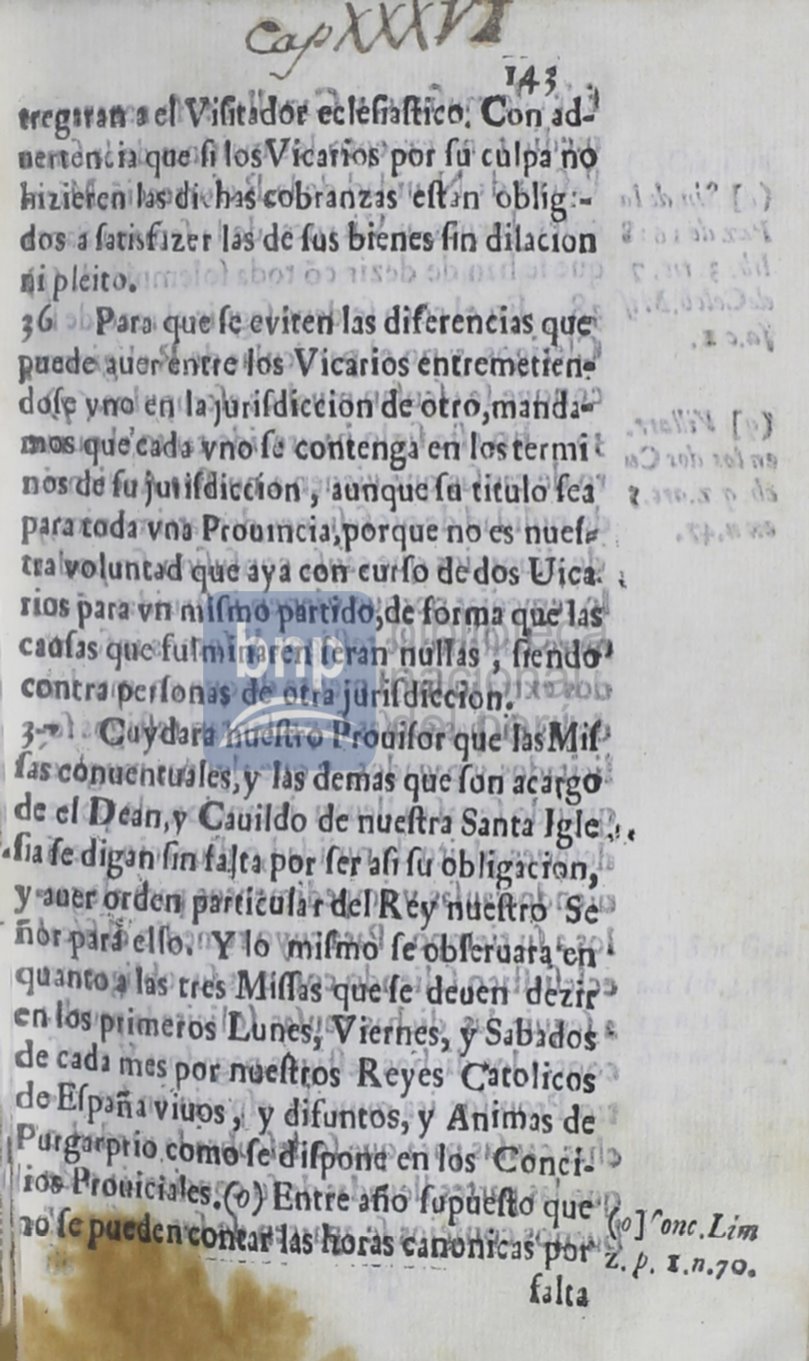 Cap XXXVI
143
tregaran a el Visitador eclesiastico. Con ad-
uertencia que si los Vicarios por su culpa no
hizieren las dichas cobranzas estan oblig:-
dos a satisfazer las de sus bienes sin dilacion
ni pleito.
36 Para que se eviten las diferencias que
puede auer entre los Vicarios entremetien-
dose vno en la jurisdiccion de otro, manda-
mos que cada vno se contenga en los termi
nos de su jurisdiccion, aunque su titulo sea
para toda vna Prouincia, porque no es nues-
tra voluntad que aya con curso de dos Uica.
rios para vn mismo partido, de forma que las
causas que fulminaren seran nullas, siendo
contra personas de otra jurisdiccion.
37 Cuydara nuestro Prouisor que las Mis
sas conuentuales, y las demas que son acargo
de el Dean, y Cauildo de nuestra Santa Igle
sia se digan sin falta por ser asi su obligacion,
y auer orden particular del Rey nuestro Se
ñor para ello. Y lo mismo se obseruara en
quanto a las tres Missas que se deuen dezir
en los primeros Lunes, Viernes, y Sabados
de cada mes por nuestros Reyes Catolicos
de España viuos, y difuntos, y Animas de
Purgarorio como se dispone en los Conci-
ios Prouiciales. (o) Entre año supuesto que
no se pueden contar las horas canonicas por
(o] Conc. Lim
2. p. 1. n. 70.
falta
bnp biblioteca
nacional
del perú